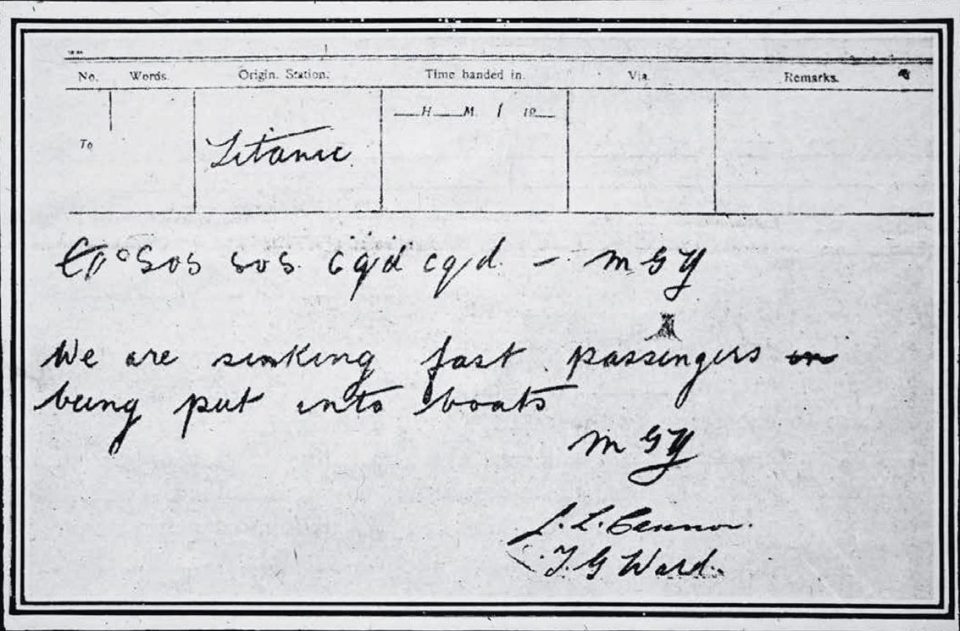 No. Words. Origin. Station. Time handed in. Via. Remarks.
H. M. / 19
To Titanic
SOS SOS cqd cqd - MGY
We are sinking fast passengers
being put into boats
MGY
T G Ward.